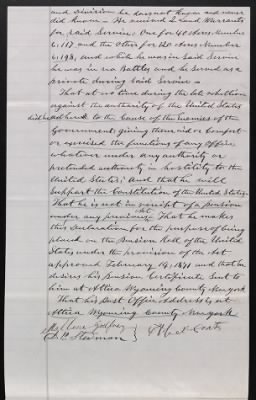 and Division he does not know and never
did know - He received 2 Land Warrants
for said Service. One for 40 Acres Number
6,117 and the other for 120 Acres Number
6,193, and while he was in said Service
he was in no Battles, and he served as a
private during said Service -
That at no time during the late rebellion
against the authority of the United States
did he adhered to the Cause of the Enemies of the
Government, giving them aid or comfort
or exercised the functions of any Office
whatever under any authority or
pretended authority in hostility to the
United States; and that he will
Support the Constitution of the United States.
That he is not in receipt of a pension
under any previous Act That he makes
this Declaration for the purpose of being
placed on the Pension Roll of the United
States under the provision of the Act
approved February 14, 1871 and that he
desires his Pension Certificate Sent to
him at Attica Wyoming County New York
That his Post Office Address is at
Attica Wyoming County New York
Godfrey
Coats